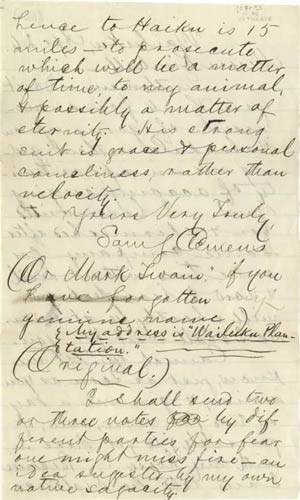 hence to Haiku is 15
miles—to prosecute
which will be a matter
of time to my animal,
& possibly a matter of
eternity. His strong
suit is grace & personal
comeliness, rather than
velocity.
Yours Very Truly
Sam L Clemens
(Or "Mark Twain," if you
have forgotten my
genuine name.)
My address is "Wailuku Plan-
tation."
(Original.)
I shall send two
or three notes by dif-
ferent parties, for fear
one might miss fire—an
idea suggested by my own
native sagacity.